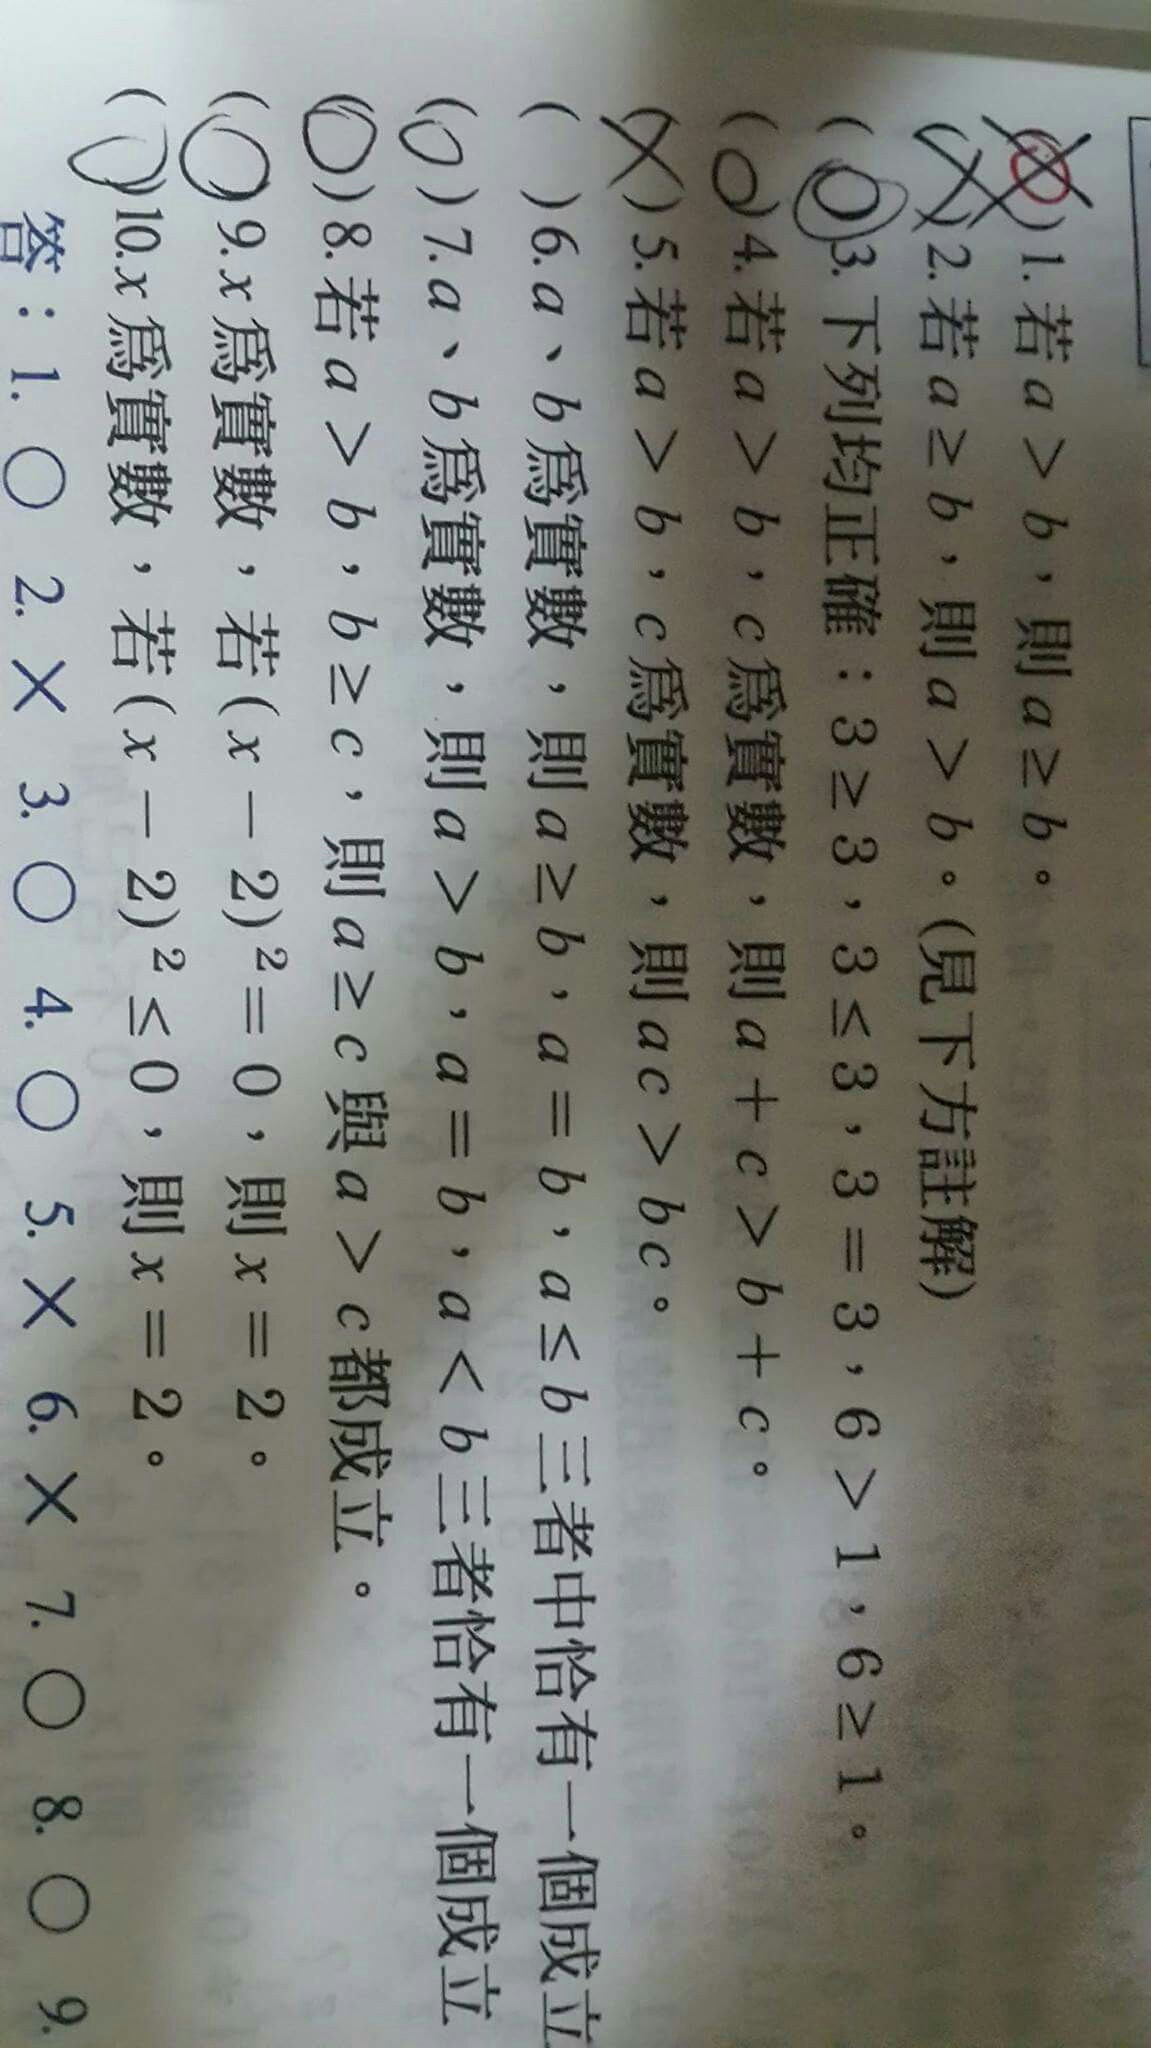 ( ⭙ )1.若a＞b，則a≥b。
( X )2.若a≥b，則a＞b。(見下方註解)
( O )3.下列均正確：3≥3，3≤3，3＝3，6＞1，6≥1。
( O )4.若a＞b，c爲實數，則a＋c＞b＋c。
( X )5.若a＞b，c爲實數，則ac＞bc。
( )6.a、b爲實數，則a≥b，a＝b，a≤b三者中恰有一個成立
( O )7.a、b爲實數，則a＞b，a＝b，a＜b三者恰有一個成立
( O )8.若a＞b，b≥c，則a≥c與a＞c都成立。
( O )9.x爲實數，若(x－2)²＝0，則x＝2。
( O )10.x爲實數，若(x－2)²≤0，則x＝2。
答：1.○ 2.× 3.○ 4.○ 5.× 6.× 7.○ 8.○ 9.